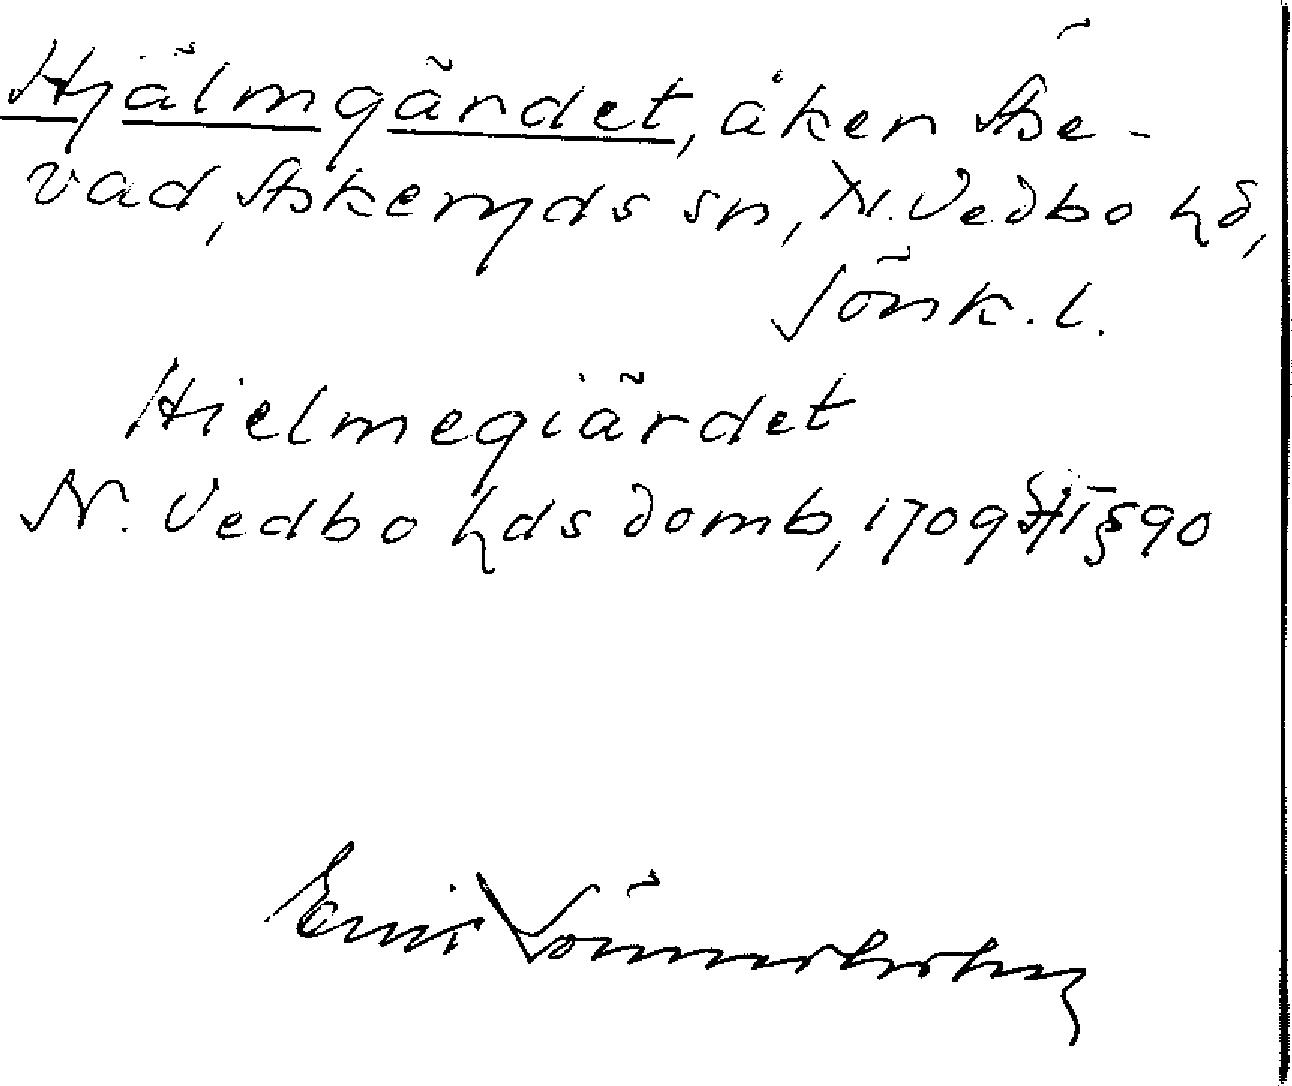 Hjälmgärdet, åker Äse-
vad, Askeryds sn, N. Vedbo hd,
Jönk. l.
Hielmegiärdet
N. Vedbo hds domb, 1709 HT § 90